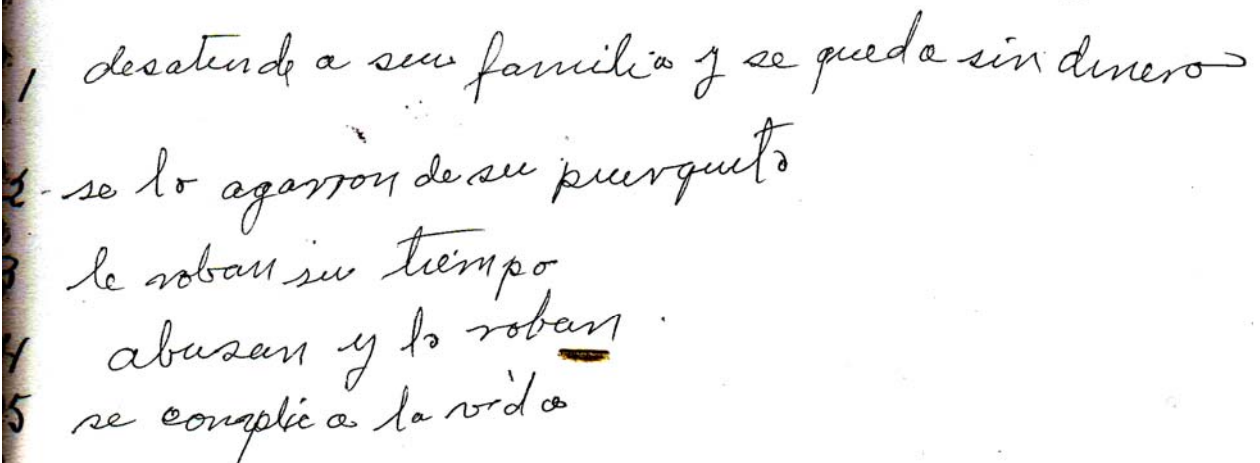 1 desatende a su familia y se queda sin dinero
2- se lo agarron de su puerquito
3 le roban su tiempo
4 abusan y lo roban.
5 se complica la vida